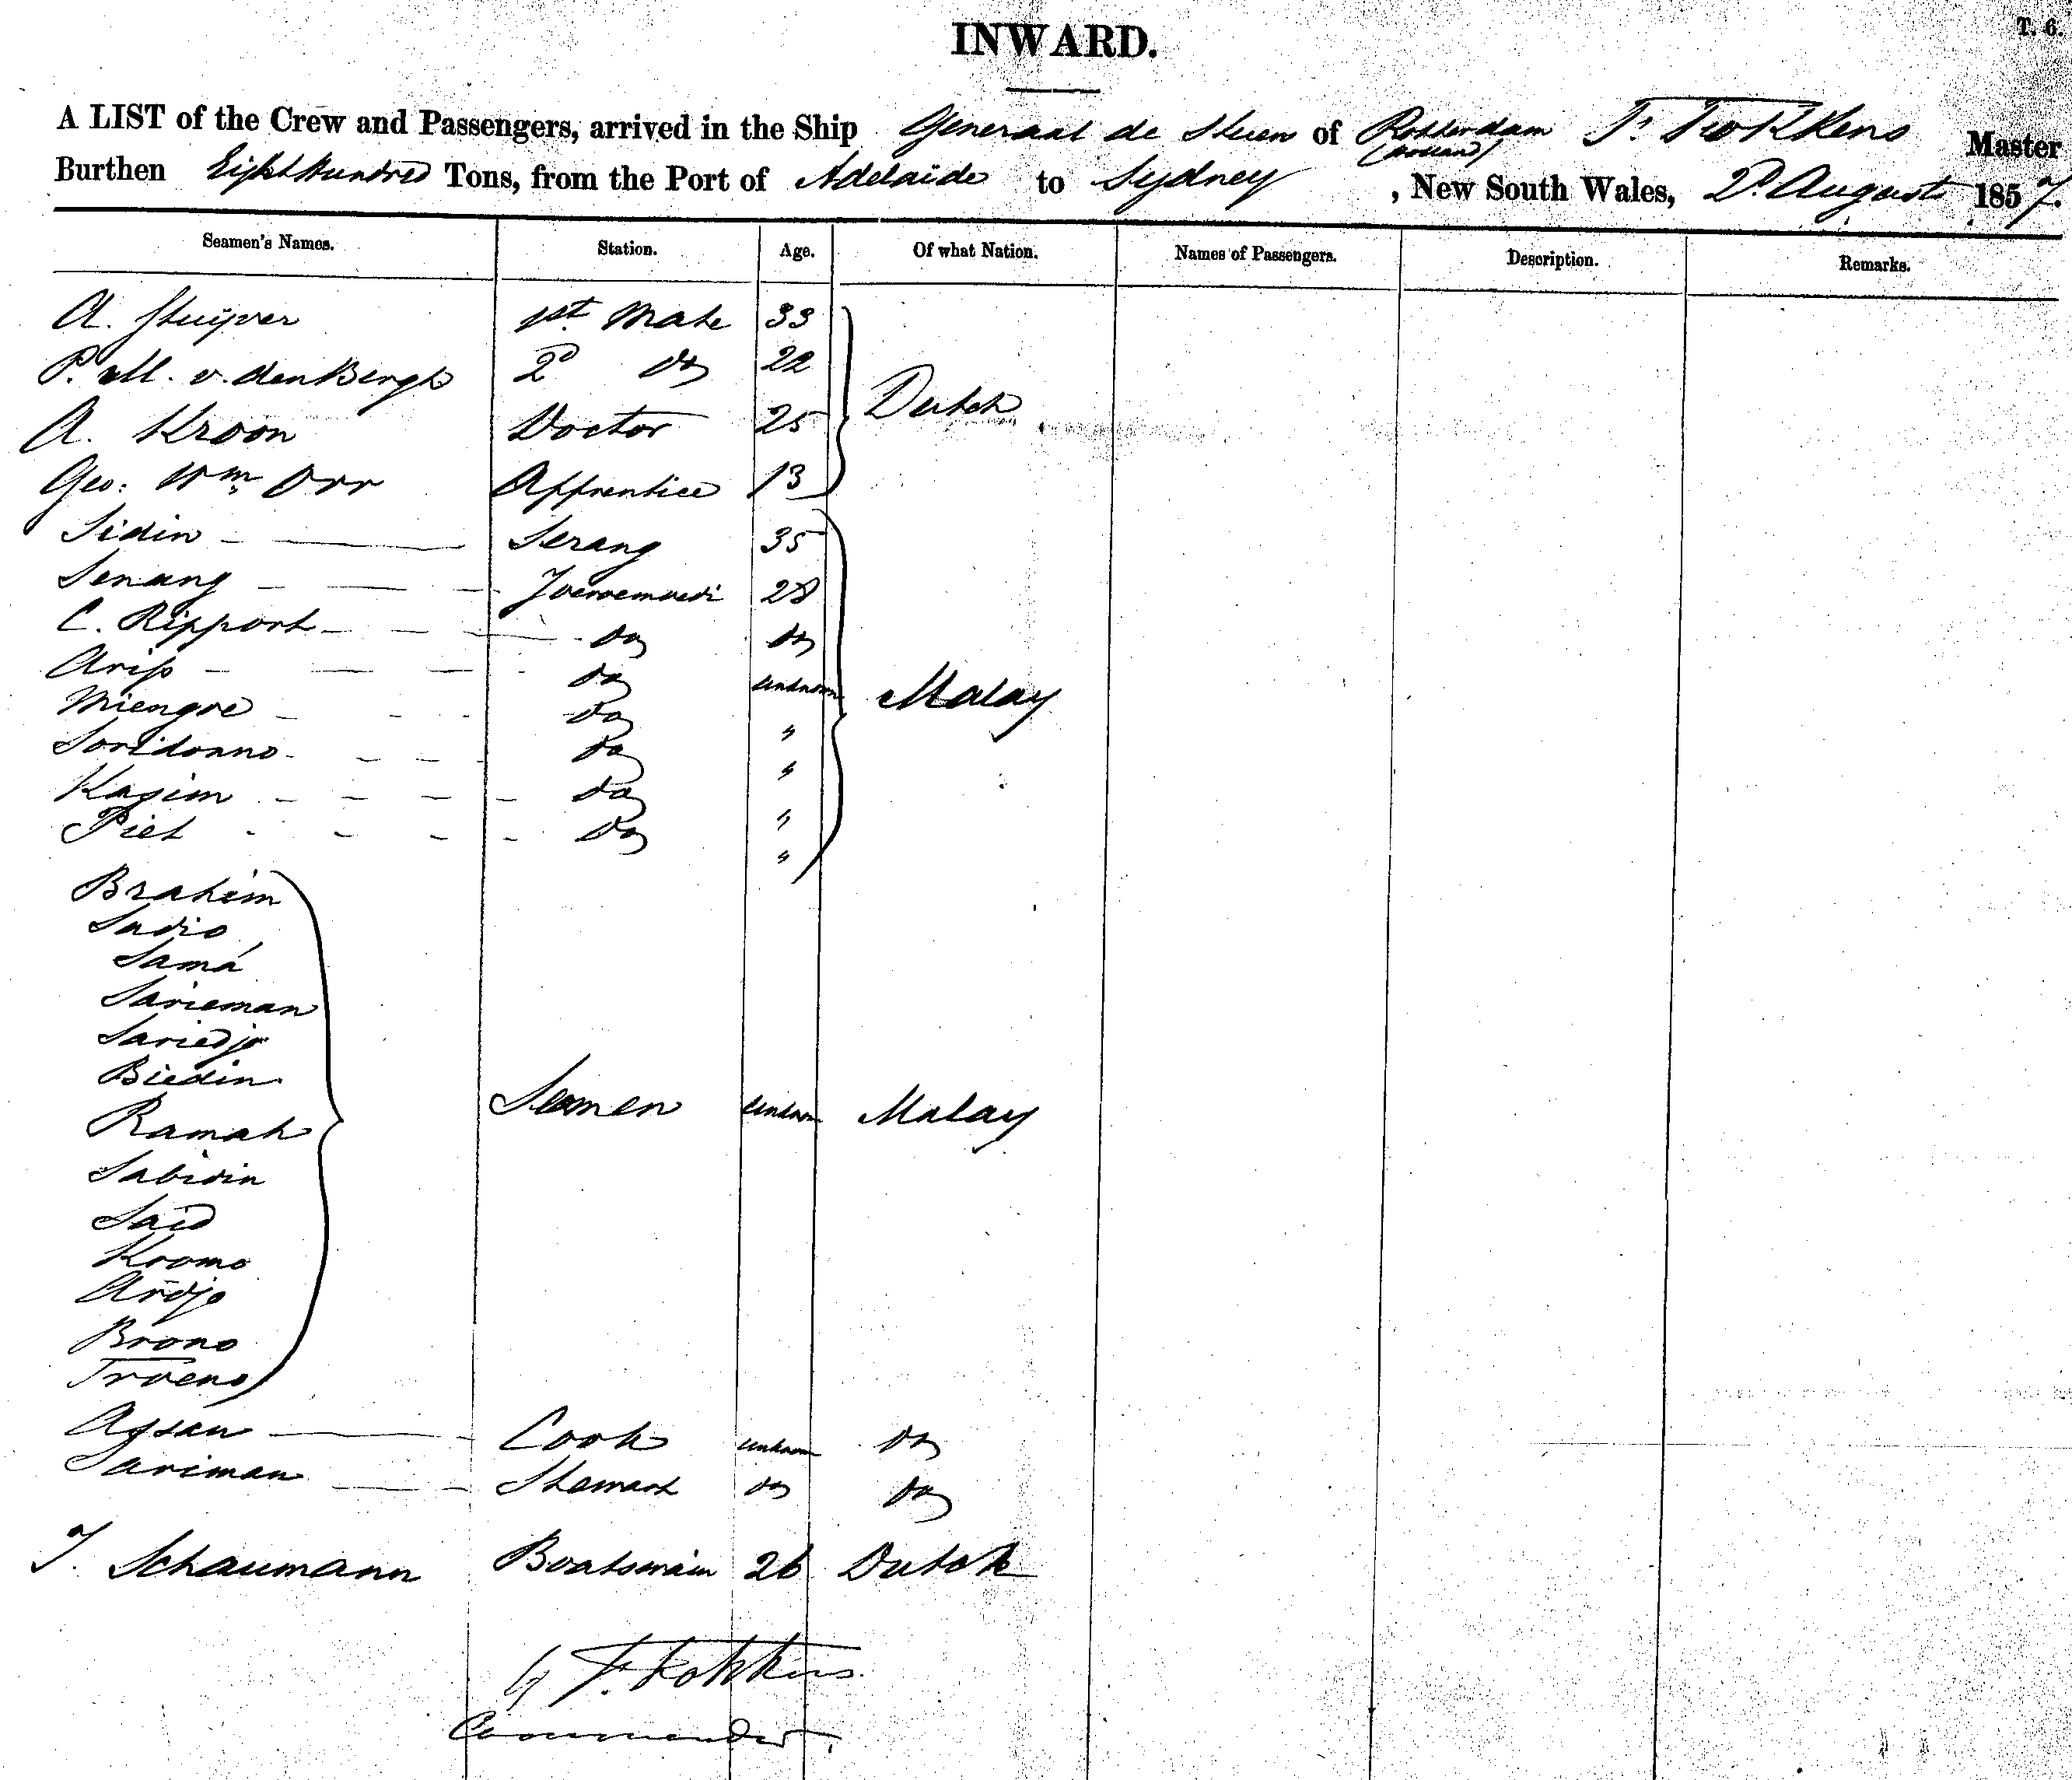 T. 6.
INWARD.
A LIST of the Crew and Passengers, arrived in the Ship Generaal de Stuers of Rotterdam (Holland) F. Fokkens Master
Burthen Eight Hundred Tons, from the Port of Adelaide to Sydney, New South Wales, 2d. August 1857.
Seamen's Names. Station. Age. Of what Nation. Names of Passengers. Description. Remarks.
A. Stuijver 1st Mate 33
P. M. v. den Bergh 2d do 22
Dutch
A. Kroon Doctor 25
Geo: Wm Orr Apprentice 13
Sidin Serang 35
Senang Joeroemoedi 28
C. Ripport do do
Arip do unknown
Malay
Miengoe do "
Soridonno do "
Kasim do "
Piet do "
Brahim
Sadio
Sama
Sarieman
Sariedjo
Biedin
Ramah Seamen unknown Malay
Sabidin
Said
Kromo
Ardjo
Brono
Troeno
Assan Cook unknown do
Sariman Steward do do
J. Schaumann Boatswain 26 Dutch
G F. Fokkens
Commander.